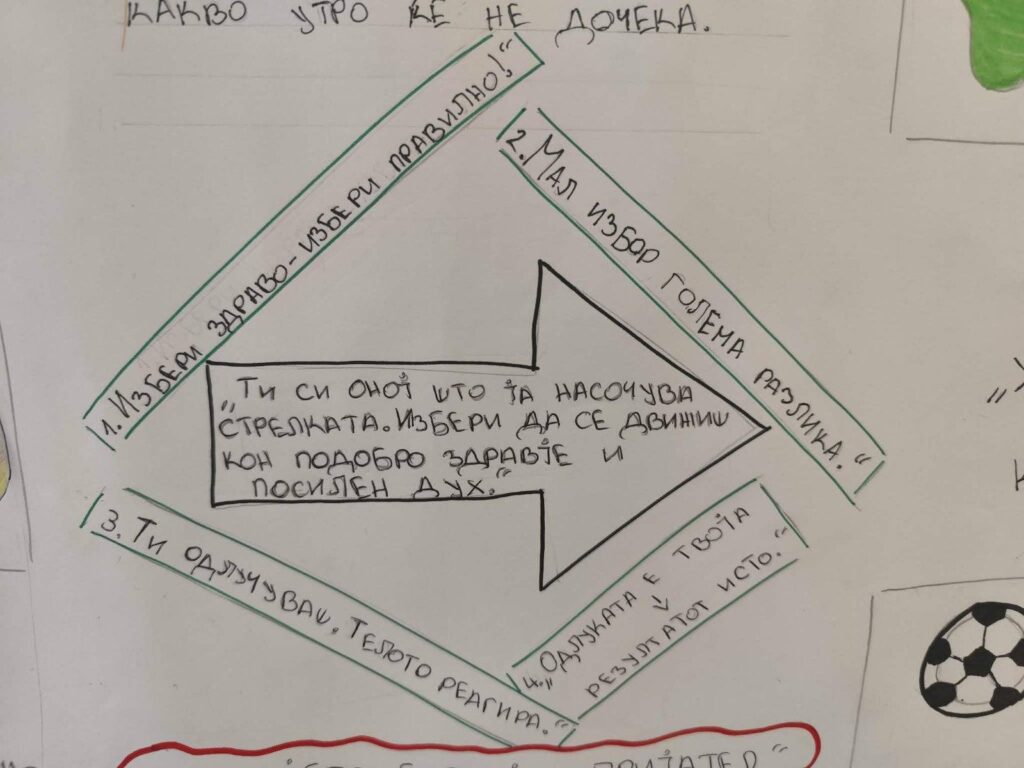 КАКВО УТРО ЌЕ НЕ ДОЧЕКА.
1. ИЗБЕРИ ЗДРАВО-ИЗБЕРИ ПРАВИЛНО!"
2. МАЛ ИЗБОР ГОЛЕМА РАЗЛИКА."
„ТИ СИ ОНОЈ ШТО ЈА НАСОЧУВА
СТРЕЛКАТА. ИЗБЕРИ ДА СЕ ДВИЖИШ
КОН ПОДОБРО ЗДРАВЈЕ И
ПОСИЛЕН ДУХ."
3. ТИ ОДЛУЧУВАШ, ТЕЛОТО РЕАГИРА."
4. „ОДЛУКАТА Е ТВОЈА
РЕЗУЛТАТОТ ИСТО."